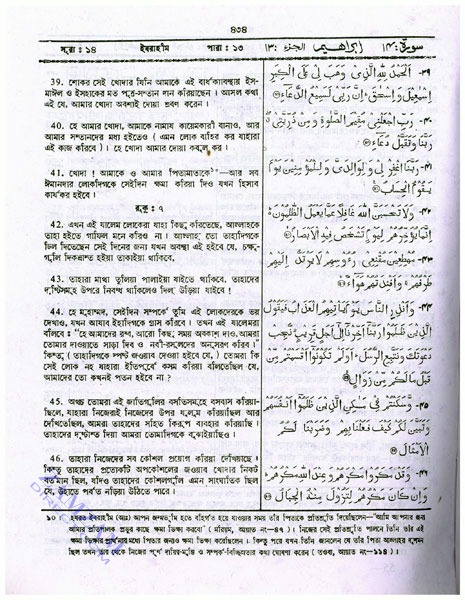 ৪৩৪
সূরা: ১৪ ইবরাহীম পারা: ১৩ الجزء: ١٣ ابراهيم سورة: ١٤
39. শোকর সেই খোদার যিনি আমাকে এই বার্ধক্যাবস্থায় ইস-
মাঈল ও ইসহাকের মত পুত্র-সন্তান দান করিয়াছেন। আসল কথা
এই যে, আমার খোদা অবশ্যই দোয়া শ্রবণ করেন।
40. হে আমার খোদা, আমাকে নামায কায়েমকারী বানাও, আর
আমার সন্তানদের মধ্য হইতেও (এমন লোক বাহির কর যাহারা
এই কাজ করিবে)। হে খোদা আমার দোয়া কবুল কর।
41. খোদা! আমাকে ও আমার পিতামাতাকে—আর সব
ঈমানদার লোকদিগকে সেইদিন ক্ষমা করিয়া দিও যখন হিসাব
কার্যকর হইবে।
রুকু: ৭
42. এখন এই যালেম লোকেরা যাহা কিছু করিতেছে, আল্লাহকে
তাহা হইতে গাফিল মনে করিও না। আল্লাহ তো তাহাদিগকে
ঢিল দিতেছেন সেই দিনের জন্য যখন অবস্থা এই হইবে যে, চক্ষু-
গুলি দিকভ্রান্ত হইয়া তাকাইয়া থাকিবে,
43. তাহারা মাথা তুলিয়া পালাইয়া যাইতে থাকিবে, তাহাদের
দৃষ্টিসমূহ উপরে নিবদ্ধ থাকিবে দিল উড়িয়া যাইবে!
44. হে মুহাম্মদ, সেইদিন সম্পর্কে তুমি এই লোকদেরকে ভয়
দেখাও, যখন আযাব ইহাদিগকে গ্রাস করিবে। তখন এই যালেমরা
বলিবে: "হে আমাদের রব্ব, আরো কিছু সময় অবকাশ দাও, আমরা
তোমার দাওয়াতে সাড়া দিব ও নবী-রসূলদের অনুসরণ করিব।"
কিন্তু (তাহাদিগকে স্পষ্ট জওয়াব দেওয়া হইবে যে,) তোমরা কি
সেই লোক নহ যাহারা ইতিপূর্বে কসম করিয়া বলিতেছিল যে,
আমাদের তো কখনই পতন হইবে না?
45. অথচ তোমরা এই জাতিগুলির বসতিসমূহে বসবাস করিয়া-
ছিলে, যাহারা নিজেরাই নিজেদের উপর যুলুম করিয়াছিল আর
দেখিতেছিলে, আমরা তাহাদের সহিত কিরূপ ব্যবহার করিয়াছি।
তাহাদের দৃষ্টান্ত দিয়া আমরা তোমাদিগকে বুঝাইয়াছিও।
46. তাহারা নিজেদের সব কৌশল প্রয়োগ করিয়া দেখিয়াছে।
কিন্তু তাহাদের প্রত্যেকটি অপকৌশলের জওয়াব খোদার নিকট
বর্তমান ছিল, যদিও তাহাদের কৌশলগুলি এমন সাংঘাতিক ছিল
যে, উহাতে পর্বত নড়িয়া উঠিতে পারে।
٣٩- اَلْحَمْدُ لِلّٰهِ الَّذِيْ وَهَبَ لِيْ عَلَى الْكِبَرِ
اِسْمٰعِيْلَ وَاِسْحٰقَ ؕ اِنَّ رَبِّيْ لَسَمِيْعُ الدُّعَآءِ
٤٠- رَبِّ اجْعَلْنِيْ مُقِيْمَ الصَّلٰوةِ وَمِنْ ذُرِّيَّتِيْ
رَبَّنَا وَتَقَبَّلْ دُعَآءِ
٤١- رَبَّنَا اغْفِرْ لِيْ وَلِوَالِدَيَّ وَلِلْمُؤْمِنِيْنَ يَوْمَ
يَقُوْمُ الْحِسَابُ
٤٢- وَلَا تَحْسَبَنَّ اللّٰهَ غَافِلًا عَمَّا يَعْمَلُ الظّٰلِمُوْنَ
اِنَّمَا يُؤَخِّرُهُمْ لِيَوْمٍ تَشْخَصُ فِيْهِ الْاَبْصَارُ
٤٣- مُهْطِعِيْنَ مُقْنِعِيْ رُءُوْسِهِمْ لَا يَرْتَدُّ اِلَيْهِمْ
طَرْفُهُمْ وَاَفْئِدَتُهُمْ هَوَآءٌ
٤٤- وَاَنْذِرِ النَّاسَ يَوْمَ يَاْتِيْهِمُ الْعَذَابُ فَيَقُوْلُ
الَّذِيْنَ ظَلَمُوْا رَبَّنَا اَخِّرْنَا اِلٰى اَجَلٍ قَرِيْبٍ نُّجِبْ
دَعْوَتَكَ وَنَتَّبِعِ الرُّسُلَ اَوَلَمْ تَكُوْنُوْا اَقْسَمْتُمْ مِّنْ
قَبْلُ مَا لَكُمْ مِّنْ زَوَالٍ
٤٥- وَّسَكَنْتُمْ فِيْ مَسٰكِنِ الَّذِيْنَ ظَلَمُوْا اَنْفُسَهُمْ
وَتَبَيَّنَ لَكُمْ كَيْفَ فَعَلْنَا بِهِمْ وَضَرَبْنَا لَكُمُ
الْاَمْثَالَ
٤٦- وَقَدْ مَكَرُوْا مَكْرَهُمْ وَعِنْدَ اللّٰهِ مَكْرُهُمْ
وَاِنْ كَانَ مَكْرُهُمْ لِتَزُوْلَ مِنْهُ الْجِبَالُ
১০। হযরত ইবরাহীম (আঃ) আপন জন্মভূমি হতে বহির্গত হয়ে যাওয়ার সময় তাঁর পিতাকে প্রতিশ্রুতি দিয়েছিলেন—"আমি আপনার জন্য
আমার প্রতিপালক প্রভুর কাছে ক্ষমা ভিক্ষা করবো" (মরিয়ম, আয়াত নং—৪৭)। নিজের সেই প্রতিশ্রুতি পালনে তিনি তাঁর এই
ক্ষমা ভিক্ষার প্রার্থনার মধ্যে পিতার জন্যও ক্ষমা ভিক্ষা করেছিলেন। কিন্তু পরে যখন তিনি জানলেন যে তাঁর পিতা আল্লাহর দুশমন
ছিল তখন তার থেকে নিজের পূর্ণ দায়িত্ব-মুক্তি ও সম্পর্ক-বিচ্ছিন্নতার কথা ঘোষণা করেন (তওবা, আয়াত নং—১১৪)।